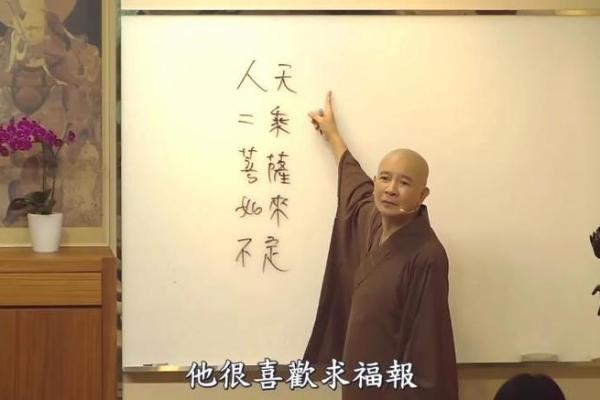 人天
二乘
菩薩
如來
不定
他很喜歡求福報